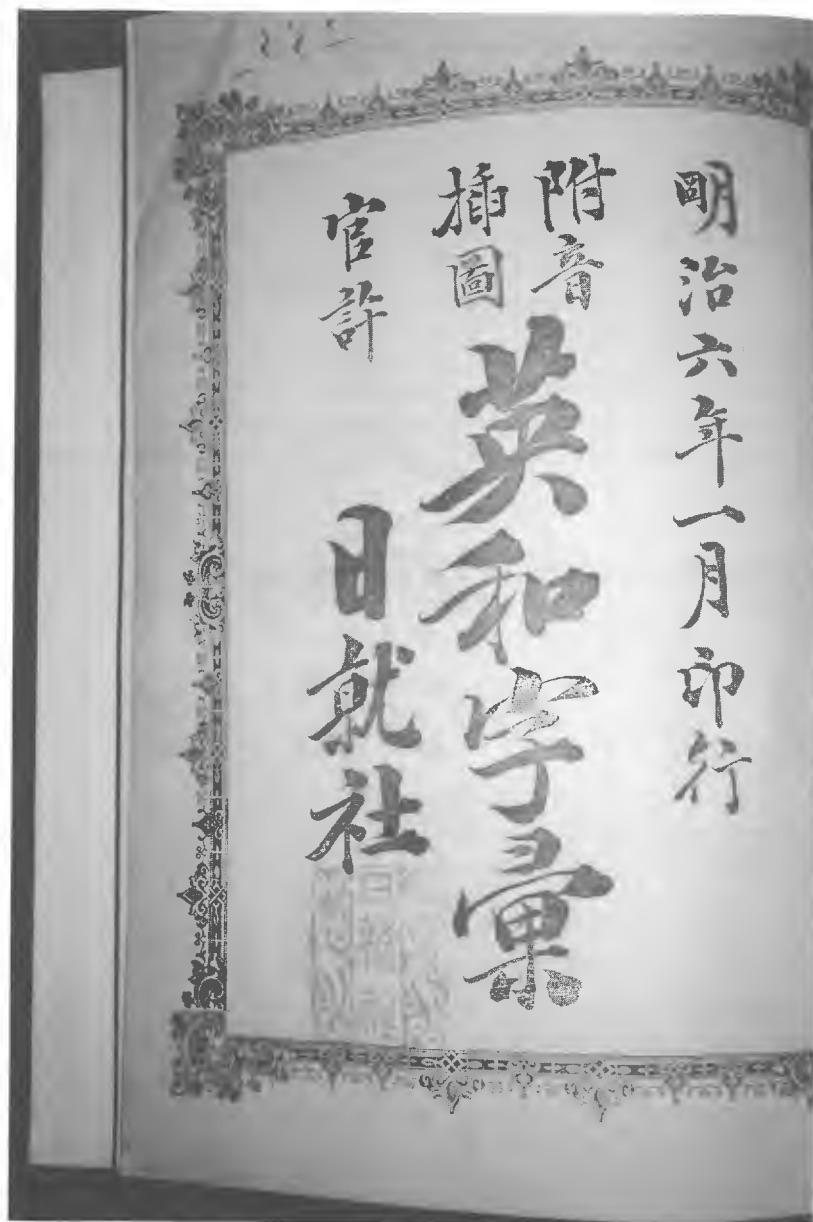 明治六年一月印行
附音
插圖
英和字彙
官許
日就社